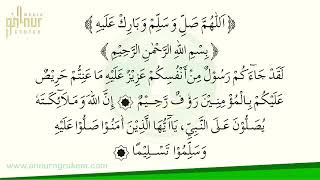 MEDIA
an-nur
CENTER
﴿ اَللّٰهُمَّ صَلِّ وَسَلِّمْ وَبَارِكْ عَلَيْهِ ﴾
﴿ بِسْمِ اللهِ الرَّحْمٰنِ الرَّحِيْمِ ﴾
لَقَدْ جَاءَكُمْ رَسُوْلٌ مِنْ أَنْفُسِكُمْ عَزِيْزٌ عَلَيْهِ مَا عَنِتُّمْ حَرِيْصٌ
عَلَيْكُمْ بِالْمُؤْمِنِيْنَ رَؤُفٌ رَحِيْمٌ ۞ إِنَّ اللهَ وَمَلَائِكَتَهُ
يُصَلُّوْنَ عَلَى النَّبِيِّ، يَاأَيُّهَا الَّذِيْنَ أٰمَنُوْا صَلُّوْا عَلَيْهِ
وَسَلِّمُوْا تَسْلِيْمًا ۞
www.annurngrukem.com